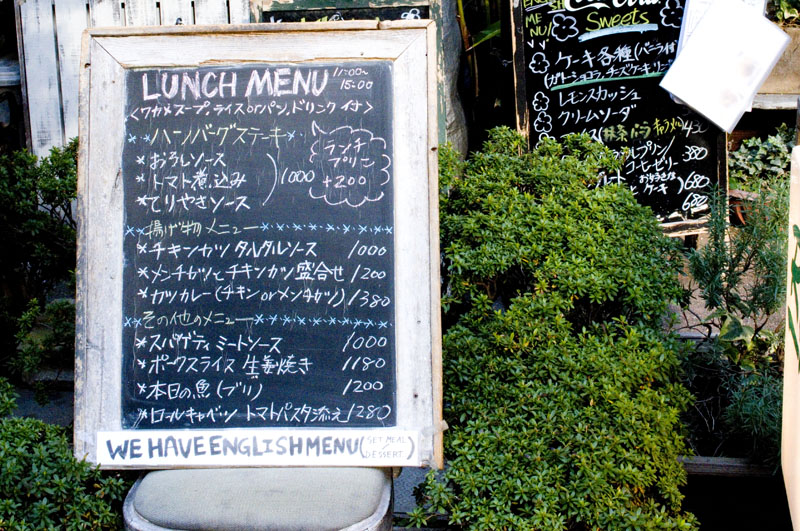 LUNCH MENU 11:00~15:00
<ワカメスープ、ライスorパン、ドリンク付>
ハンバーグステーキ
*おろしソース
*トマト煮込み
*てりやきソース
1000
ランチ
プリン
+200
揚げ物メニュー
*チキンカツ タルタルソース 1000
*メンチカツとチキンカツ盛合せ 1200
*カツカレー(チキンorメンチカツ) 1380
その他のメニュー
*スパゲティミートソース 1000
*ポークスライス 生姜焼き 1180
*本日の魚(ブリ) 1200
*ロールキャベツ トマトパスタ添え 1280
WE HAVE ENGLISH MENU (SET MEAL / DESSERT)
ENGLISH
MENU
Sweets
ケーキ各種(バニラ付)
(ガトーショコラ、チーズケーキ
レモンスカッシュ
クリームソーダ
抹茶 バニラ キャラメル 450
プリン 380
コーヒーゼリー
お好きな 680
ケーキ) 680